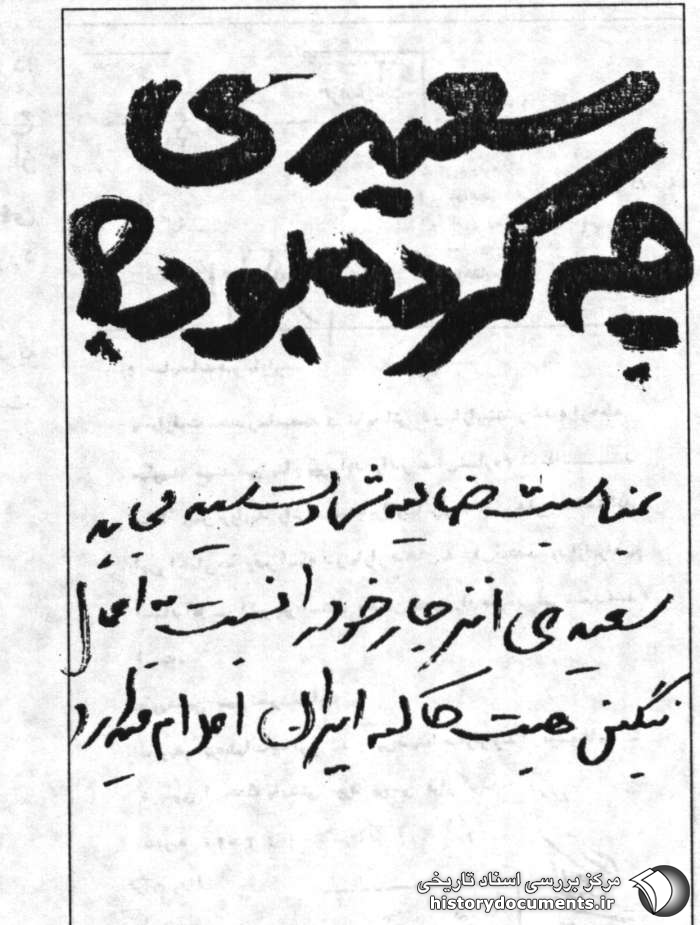 سعیدی
چه کرده بود؟
بمناسبت ضایعه شهادت سید مجاهد
سعیدی انزجار خود را نسبت به اعمال
ننگین هیئت حاکمه ایران اعلام میدارد
مرکز بررسی اسناد تاریخی
historydocuments.ir